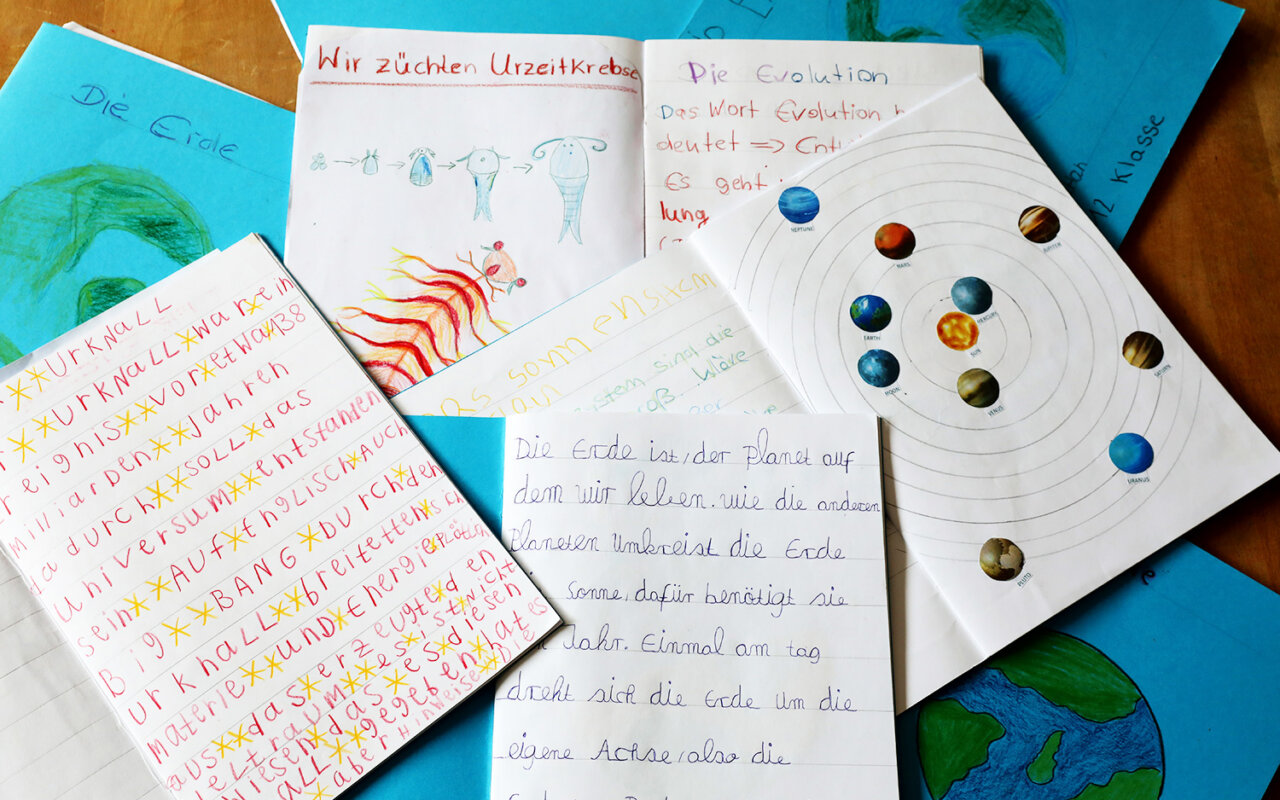 Die Erde
Wir züchten Urzeitkrebse
Die Evolution
Das Wort Evolution b
deutet => Entw
Es geht
lung
12 Klasse
NEPTUNE
MARS
JUPITER
MERCURY
EARTH
SUN
MOON
VENUS
SATURN
URANUS
PLUTO
sonn ensistem
ystem sind die
roß. Wäre
**UrKNALL
**UrKNALL*war*ein
reignis**vor*etwa*138
milliarden**Jahren
dadurch**soll*das
universum**entstanden
sein**AUF*Englisch*AUCH
Big**BANG*DUrchden
UrKhall**breitetten*sich
materie**und*Energie*Plötzlich
aus**das*erzeugte*den
eltraum**es*ist*nicht
wiesen*das*es*diesen
ALL**gegeben*hat*es
aber*Hinweise*
Die Erde ist, der Planet auf
dem wir leben. wie die anderen
Planeten umkreist die Erde
Sonne, dafür benötigt sie
Jahr. Einmal am tag
dreht sich die Erde um die
eigene Achse, also die